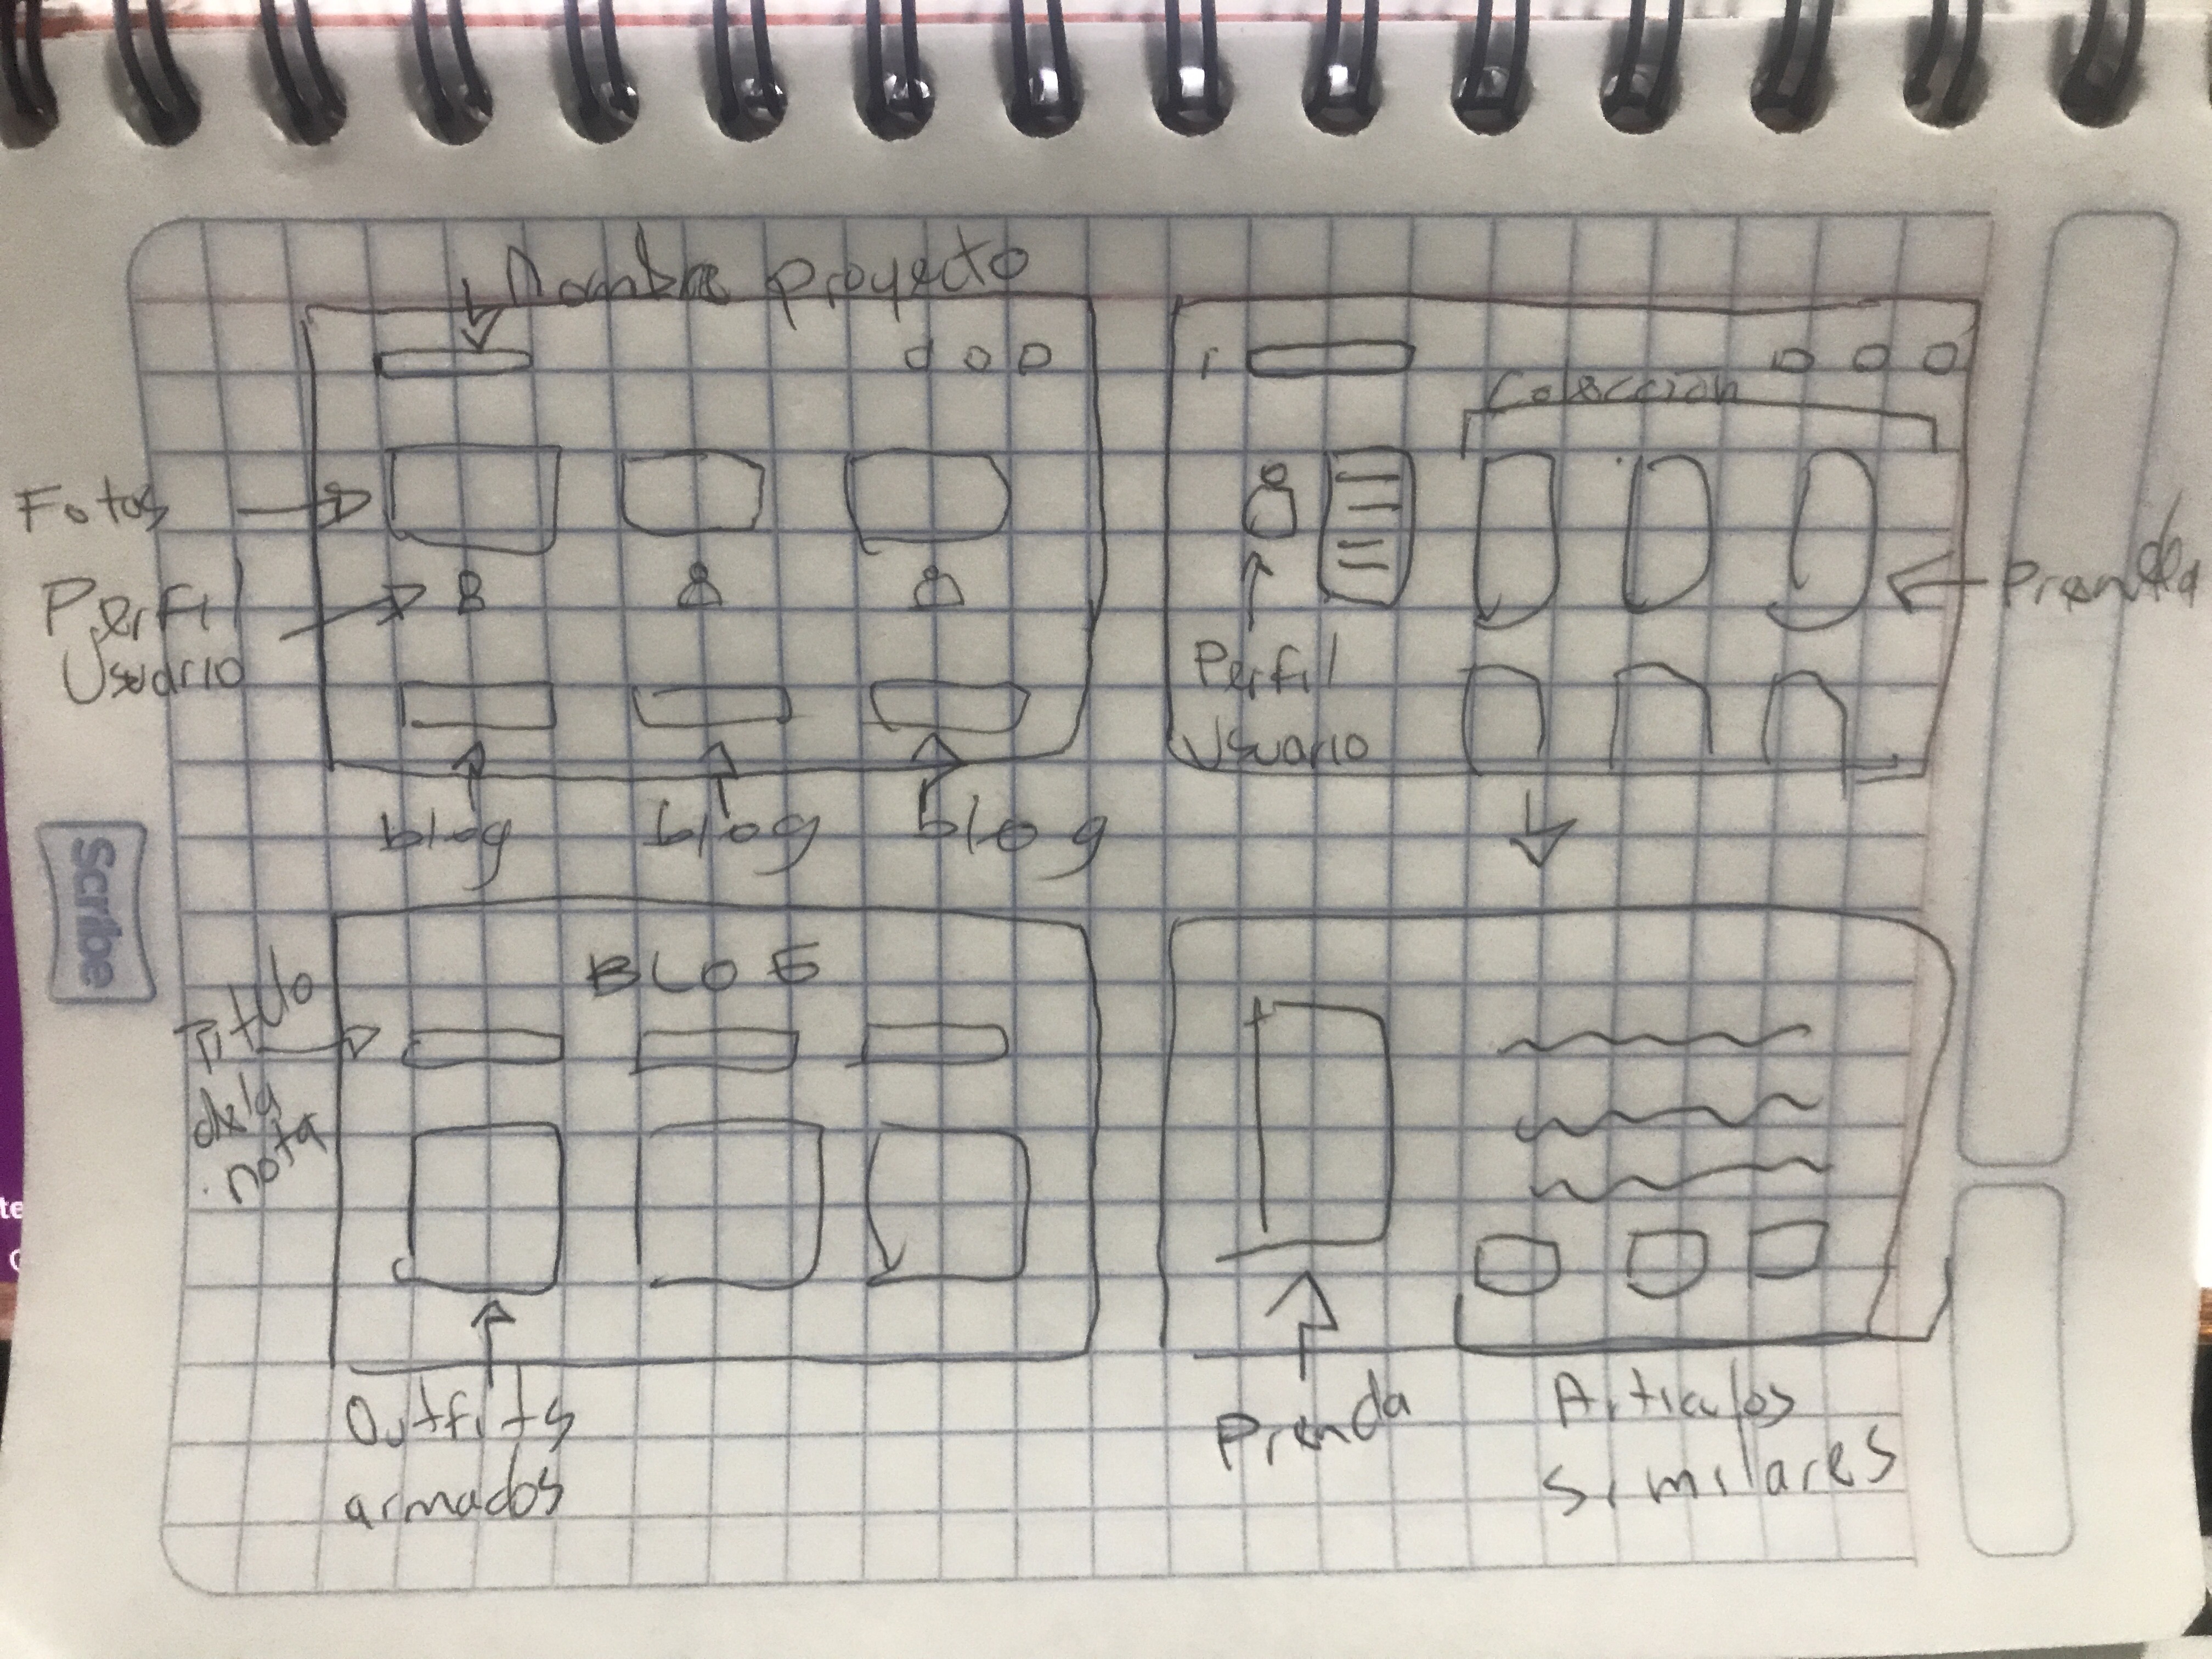 Nombre proyecto
Fotos
Perfil
Usuario
blog
blog
blog
Colección
Prenda
Perfil
Usuario
BLOG
Titulo
de la
nota
Outfits
armados
Prenda
Articulos
Similares
Scribe
te